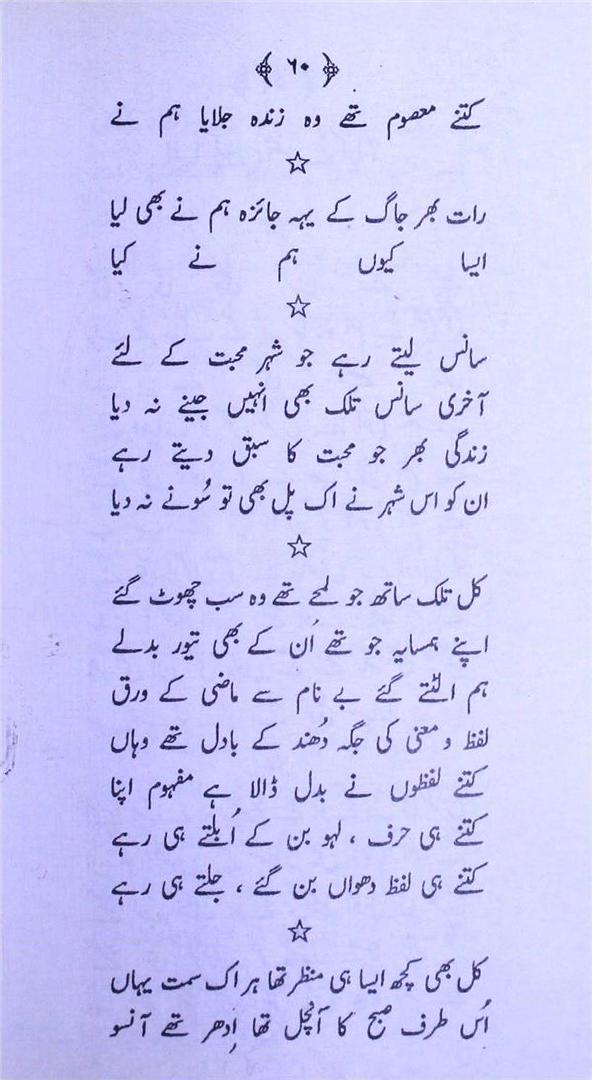 ۶۰
کتنے معصوم تھے وہ زندہ جلایا ہم نے
☆
رات بھر جاگ کے یہہ جائزہ ہم نے بھی لیا
ایسا کیوں ہم نے کیا
☆
سانس لیتے رہے جو شہر محبت کے لئے
آخری سانس تلک بھی انہیں جینے نہ دیا
زندگی بھر جو محبت کا سبق دیتے رہے
ان کو اس شہر نے اک پل بھی تو سُونے نہ دیا
☆
کل تلک ساتھ جو لمحے تھے وہ سب چھوٹ گئے
اپنے ہمسایہ جو تھے اُن کے بھی تیور بدلے
ہم الٹتے گئے بے نام سے ماضی کے ورق
لفظ و معنی کی جگہ دُھند کے بادل تھے وہاں
کتنے لفظوں نے بدل ڈالا ہے مفہوم اپنا
کتنے ہی حرف ، لہو بن کے اُبلتے ہی رہے
کتنے ہی لفظ دھواں بن گئے ، جلتے ہی رہے
☆
کل بھی کچھ ایسا ہی منظر تھا ہر اک سمت یہاں
اُس طرف صبح کا آنچل تھا اِدھر تھے آنسو